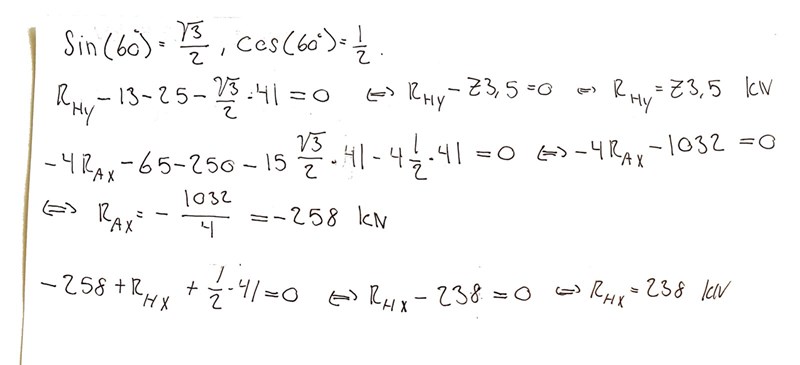 Sin(60°) = √3/2 , cos(60°) = 1/2 .
R_Hy − 13 − 25 − √3/2 · 41 = 0 ⇔ R_Hy − 73,5 = 0 ⇔ R_Hy = 73,5 kN
−4R_Ax − 65 − 250 − 15 √3/2 · 41 − 4 1/2 · 41 = 0 ⇔ −4R_Ax − 1032 = 0
⇔ R_Ax = − 1032/4 = −258 kN
−258 + R_Hx + 1/2 · 41 = 0 ⇔ R_Hx − 238 = 0 ⇔ R_Hx = 238 kN